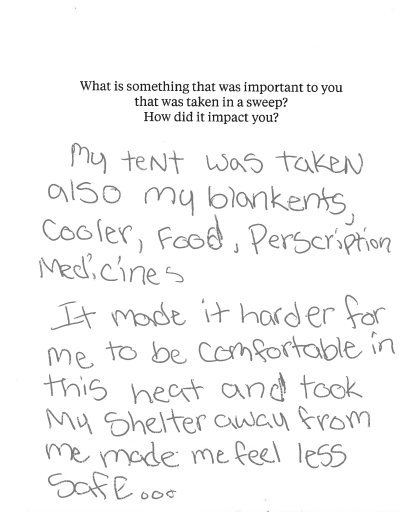 What is something that was important to you
that was taken in a sweep?
How did it impact you?
My tent was taken
also my blankents,
Cooler, Food, Perscription
Medicines
It made it harder for
me to be comfortable in
this heat and took
My Shelter away from
me made me feel less
Safe...